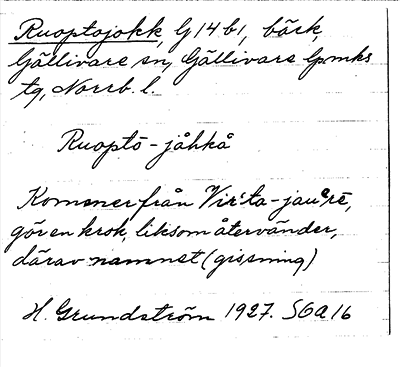 Ruoptojokk, G 14 b1, bäck,
Gällivare sn, Gällivare lpmks
tg, Norrb. l.
Ruoptō-jåhkå
Kommer från Vir'ta-jauᵉrē,
gör en krok, liksom återvänder,
därav namnet (gissning)
H. Grundström 1927. S6a16